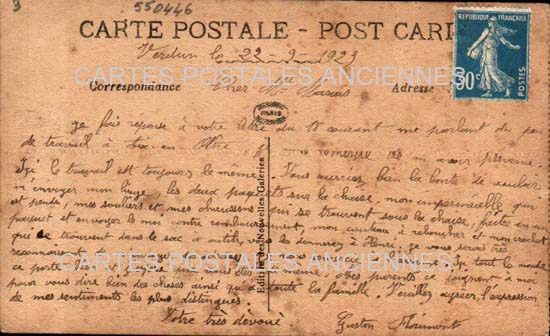 3
550446
CARTE POSTALE - POST CARD
REPUBLIQUE FRANÇAISE
30c
Verdun le 22-9-1923
CARTES POSTALES ANCIENNES
Correspondance
Adresse
Cher Mr
PARIS
Je fais reponse à votre lettre du 18 courant me parlant du peu
de travail à en m'avoir prévenu
Ici le travail est toujours le même. Vous auriez bien la bonté de vouloir
m envoyer mon linge, les deux sur la chaise, mon imperméable qui
est pendu, mes souliers et mes chaussons qui se trouvent sous la chaise, faites en un
paquet et envoyer le moi contre remboursement, mon couteau à et mon
que se trouvent dans le sac à outils, vous les donnerez à Henri, je vous serai très
reconnaissant tout le monde
CARTES POSTALES ANCIENNES
se porte parents se joignent à moi
pour vous dire bien des choses ainsi qu'à toute la famille. Veuillez agréer, l'expression
de mes sentiments les plus distingués.
Votre très dévoué
Gaston
Edition des Nouvelles Galeries